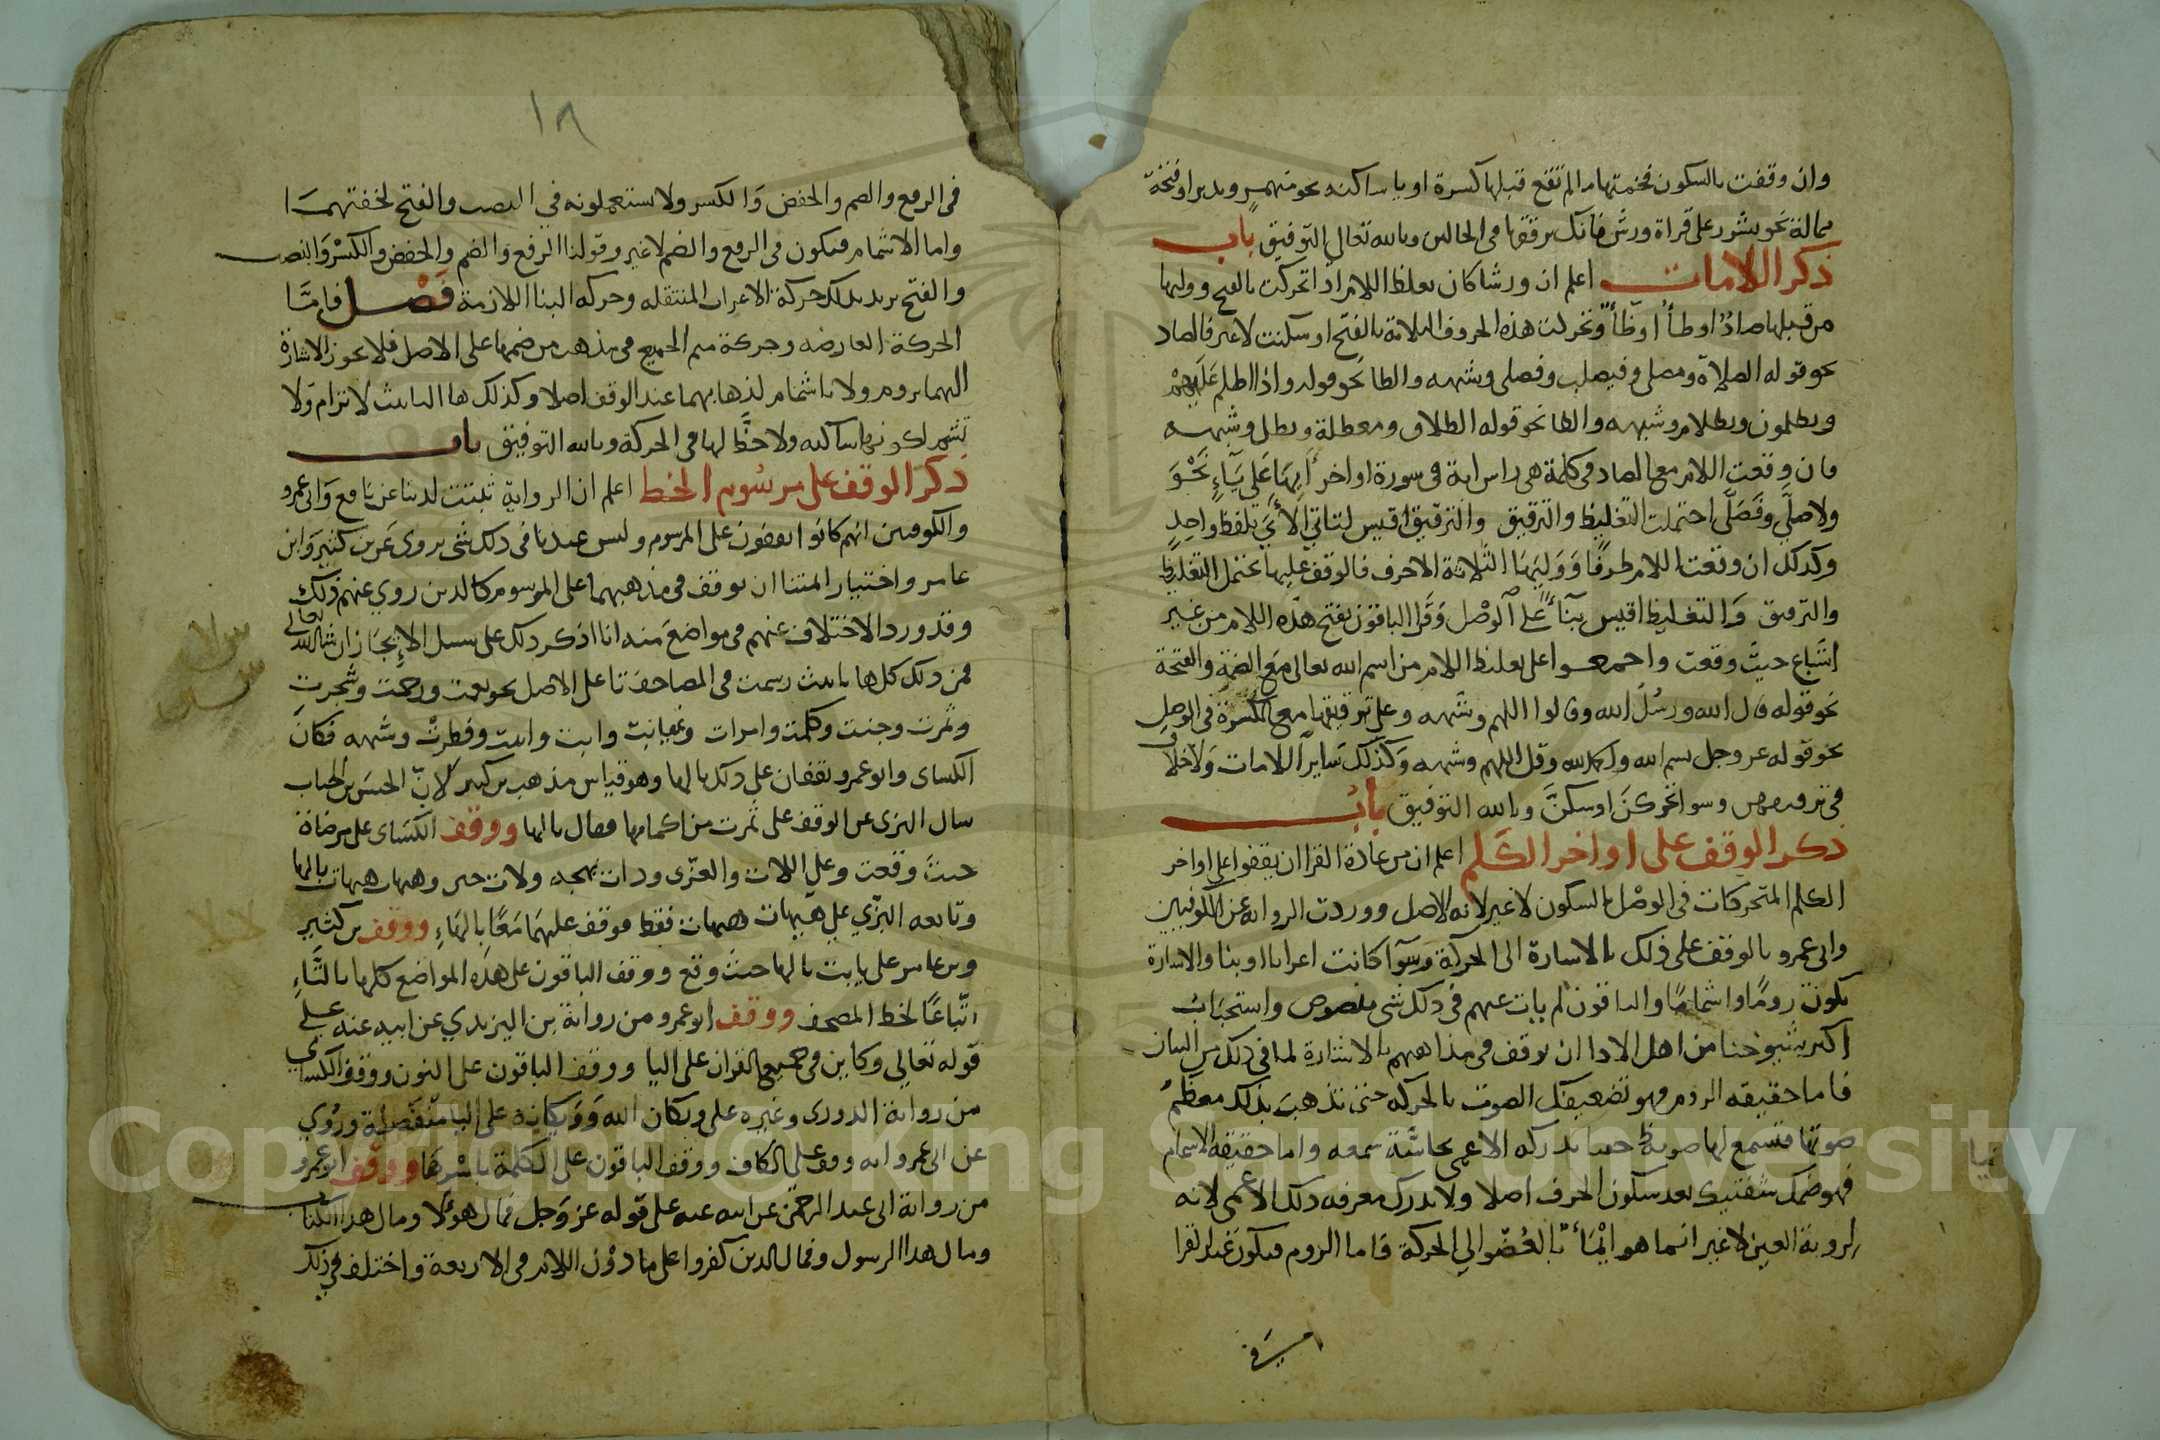 وان وقفت بالسكون فخمتها ما لم تقع قبلها كسرة او يا ساكنه نحو منهمر ويدبر او فتحة
ممالة نحو بشرر على قراة ورش فانك ترققها في الحالين وبالله تعالى التوفيق باب
ذكر اللامات اعلم ان ورشا كان يغلظ اللام اذا تحركت بالفتح ووليها
من قبلها صاد او طا او ظا وتحركت هذه الحروف الثلاثة بالفتح او سكنت لا غير فالصاد
نحو قوله الصلاة ومصلى وفيصلب وفصلى وشبهه والظا نحو قوله واذا اظلم عليهم
ويظلمون وبظلام وشبهه والطا نحو قوله الطلاق ومعطلة وبطل وشبهه
فان وقعت اللام مع الصاد في كلمة هي راس اية في سورة اواخر ايها على ياء نحو
ولا صلى وفصلى احتملت التغليظ والترقيق والترقيق اقيس لتاتي الاي بلفظ واحد
وكذلك ان وقعت اللام طرفا ووليتها الثلاثة الاحرف فالوقف عليها يحتمل التغليظ
والترقيق والتغليظ اقيس بناء على الوصل وقرا الباقون بفتح هذه اللام من غير
اشباع حيث وقعت واجمعوا على تغليظ اللام من اسم الله تعالى مع الضمة والفتحة
نحو قوله قال الله ورسل الله وقالوا اللهم وشبهه وعلى ترقيقها مع الكسرة في الوصل
نحو قوله عز وجل بسم الله والحمد لله وقل اللهم وشبهه وكذلك ساير اللامات ولا خلاف
في ترقيقهن وسوا تحركن او سكن وبالله التوفيق باب
ذكر الوقف على اواخر الكلم اعلم ان من عادة القرا ان يقفوا على اواخر
الكلم المتحركات في الوصل بالسكون لا غير لانه الاصل ووردت الرواية عن الكوفيين
وابي عمرو بالوقف على ذلك بالاشارة الى الحركة وسوآ كانت اعرابا او بنا والاشارة
تكون روما واشماما والباقون لم يات عنهم في ذلك شي منصوص واستحباب
اكثر شيوخنا من اهل الادا ان يوقف في مذاهبهم بالاشارة لما في ذلك من البيان
فاما حقيقه الروم فهو تضعيفك الصوت بالحركه حتى يذهب بذلك معظم
صوتها فتسمع لها صويتا خفيا يدركه الاعمى بحاسة سمعه واما حقيقه الاشمام
فهو ضمك شفتيك بعد سكون الحرف اصلا ولا يدرك معرفه ذلك الاعمى لانه
لروية العين لا غير انما هو ايماء بالعضو الى الحركة فاما الروم فيكون عند القرا
في الرفع والضم والخفض والكسر ولا يستعملونه في النصب والفتح لخفتهما
واما الاشمام فيكون في الرفع والضم لا غير وقولنا الرفع والضم والخفض والكسر والنصب
والفتح نريد بذلك حركة الاعراب المنتقله وحركه البنا اللازمة فصل فاما
الحركة العارضه وحركة ميم الجميع في مذهب من ضمها على الاصل فلا تجوز الاشارة
اليهما بروم ولا باشمام لذهابهما عند الوقف اصلا وكذلك ها التانيث لا ترام ولا
تشم لكونها ساكنه ولا حظ لها في الحركة وبالله التوفيق باب
ذكر الوقف على مرسوم الخط اعلم ان الرواية ثبتت لدينا عن نافع وابي عمرو
والكوفيين انهم كانوا يقفون على المرسوم وليس عندنا في ذلك شي يروى عن بن كثير وابن
عامر واختيار ايمتنا ان يوقف في مذهبهما على المرسوم كالذين روي عنهم ذلك
وقد ورد الاختلاف عنهم في مواضع منه انا اذكر ذلك على سبيل الايجاز ان شا الله تعالى
فمن ذلك كل ها تانيث رسمت في المصاحف تا على الاصل نحو نعمت ورحمت وشجرت
وثمرت وجنت وكلمت وامرات وغيابت وايت وابنت وفطرت وشبهه فكان
الكساى وابو عمرو يقفان على ذلك بالها وهو قياس مذهب بن كثير لان الحسن بن الحباب
سال البزي عن الوقف على ثمرت من اكمامها فقال بالها ووقف الكساى على مرضاة
حيث وقعت وعلى اللات والعزى وذات بهجه ولات حين وهيهات هيهات بالها
وتابعه البزي على هيهات هيهات فقط فوقف عليهما معا بالهاء ووقف بن كثير
وبن عامر على يابت بالها حيث وقع ووقف الباقون على هذه المواضع كلها بالتاء
اتباعا لخط المصحف ووقف ابو عمرو من رواية بن اليزيدي عن ابيه عنه على
قوله تعالى وكاين في جميع القران على اليا ووقف الباقون على النون ووقف الكساى
من رواية الدورى وغيره على ويكان الله وويكانه على اليا منفصلة وروي
عن ابي عمرو انه وقف على الكاف ووقف الباقون على الكلمة باسرها ووقف ابو عمرو
من رواية ابي عبد الرحمن عن ابيه عنه على قوله عز وجل فمال هولا ومال هذا الكتاب
ومال هذا الرسول وفمال الذين كفروا على ما دون اللام في الاربعة واختلف في ذلك